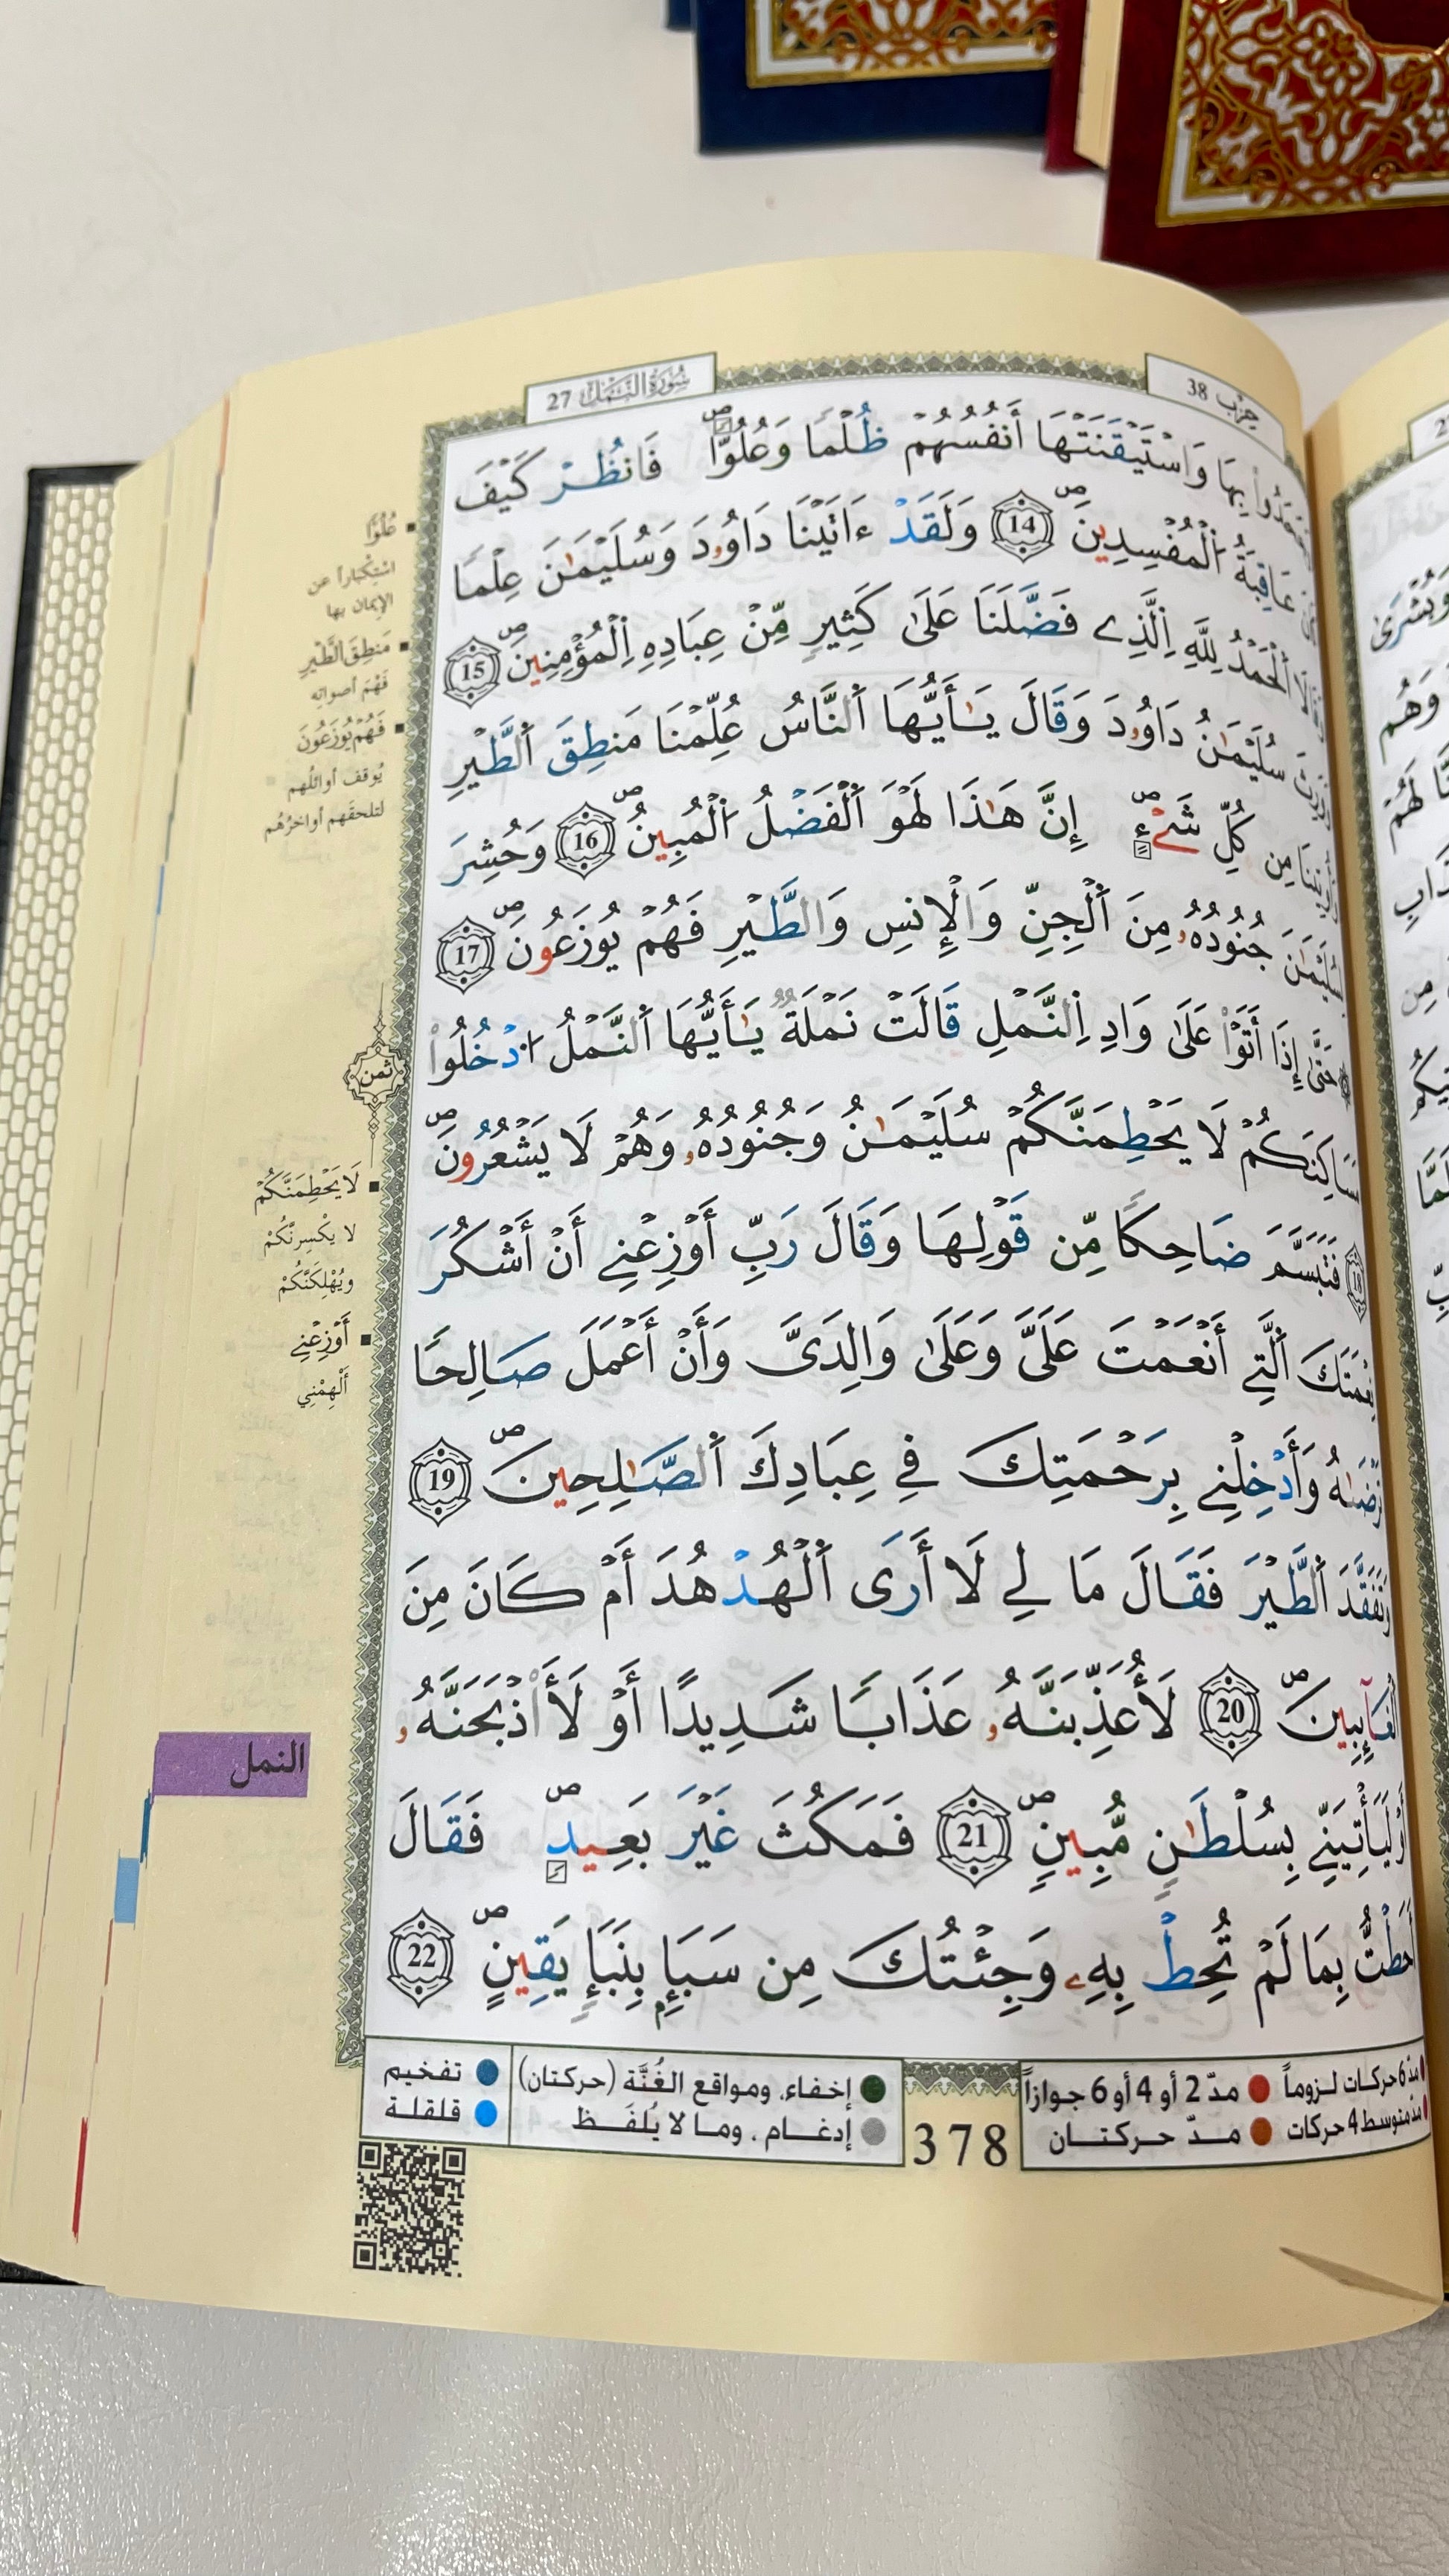 سُورَةُ النَّمْلِ 27
حِزْب 38
بِهَا وَاسْتَيْقَنَتْهَا أَنفُسُهُمْ ظُلْمًا وَعُلُوًّا فَانظُرْ كَيْفَ
عَاقِبَةُ الْمُفْسِدِينَ 14 وَلَقَدْ ءَاتَيْنَا دَاوُۥدَ وَسُلَيْمَٰنَ عِلْمًا
الْحَمْدُ لِلَّهِ اِلَّذِے فَضَّلَنَا عَلَىٰ كَثِيرٍ مِّنْ عِبَادِهِ اِلْمُؤْمِنِينَ 15
سُلَيْمَٰنُ دَاوُۥدَ وَقَالَ يَٰأَيُّهَا اَلنَّاسُ عُلِّمْنَا مَنطِقَ اَلطَّيْرِ
مِن كُلِّ شَےْءٍ إِنَّ هَٰذَا لَهُوَ اَلْفَضْلُ اُلْمُبِينُ 16 وَحُشِرَ
لِسُلَيْمَٰنَ جُنُودُهُۥ مِنَ اَلْجِنِّ وَالْإِنسِ وَالطَّيْرِ فَهُمْ يُوزَعُونَ 17
حَتَّىٰ إِذَا أَتَوْا عَلَىٰ وَادِ اِلنَّمْلِ قَالَتْ نَمْلَةٌ يَٰأَيُّهَا اَلنَّمْلُ ادْخُلُوا
مَسَاكِنَكُمْ لَا يَحْطِمَنَّكُمْ سُلَيْمَٰنُ وَجُنُودُهُۥ وَهُمْ لَا يَشْعُرُونَ
18 فَتَبَسَّمَ ضَاحِكًا مِّن قَوْلِهَا وَقَالَ رَبِّ أَوْزِعْنِے أَنْ أَشْكُرَ
نِعْمَتَكَ اَلَّتِے أَنْعَمْتَ عَلَىَّ وَعَلَىٰ وَالِدَىَّ وَأَنْ أَعْمَلَ صَالِحًا
تَرْضَىٰهُ وَأَدْخِلْنِے بِرَحْمَتِكَ فِے عِبَادِكَ اَلصَّٰلِحِينَ 19
وَتَفَقَّدَ اَلطَّيْرَ فَقَالَ مَا لِے لَا أَرَى اَلْهُدْهُدَ أَمْ كَانَ مِنَ
اَلْغَآئِبِينَ 20 لَأُعَذِّبَنَّهُۥ عَذَابًا شَدِيدًا أَوْ لَأَاْذْبَحَنَّهُۥ
أَوْ لَيَأْتِيَنِّے بِسُلْطَٰنٍ مُّبِينٍ 21 فَمَكُثَ غَيْرَ بَعِيدٍ فَقَالَ
أَحَطتُ بِمَا لَمْ تُحِطْ بِهِۦ وَجِئْتُكَ مِن سَبَإٍ بِنَبَإٍ يَقِينٍ 22
عُلُوًّا
اسْتِكْباراً عن
الإيمان بها
مَنطِقَ الطَّيْرِ
فَهْمَ أصواتِه
فَهُمْ يُوزَعُونَ
يُوقف أوائلُهم
لتلحقَهم أواخرُهُم
ثمن
لَا يَحْطِمَنَّكُمْ
لا يكْسِرنَّكُمْ
ويُهْلِكَنَّكُمْ
أَوْزِعْنِے
ألْهِمْنِي
النمل
مدّ 6 حركات لزوماً ● مدّ 2 أو 4 أو 6 جوازاً
مدّ متوسط 4 حركات ● مدّ حركتان
378
● إخفاء، ومواقع الغُنَّة (حركتان)
● إدغام، وما لا يُلفَظ
● تفخيم
● قلقلة